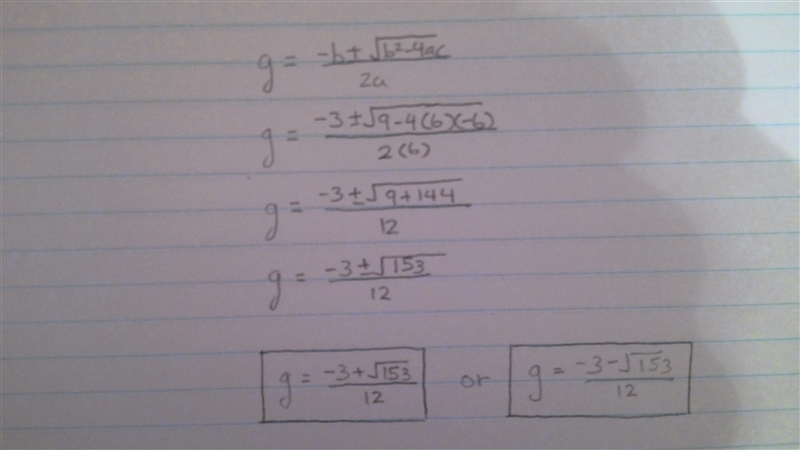 g = (-b ± √(b²-4ac))/(2a)
g = (-3 ± √(9-4(6)(-6)))/(2(6))
g = (-3 ± √(9+144))/12
g = (-3 ± √153)/12
g = (-3 + √153)/12 or g = (-3 - √153)/12